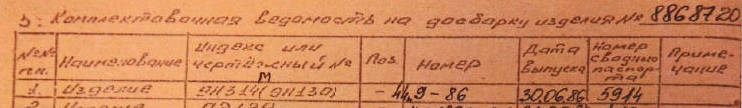 3. Комплектовочная ведомость на досборку изделия № 8868720
№№ п.п. Наименование Индекс или чертежный № Поз. Номер Дата выпуска Номер сводного паспорта Примечание
1. Изделие 9М - 44.9-86 30.06.86 5914
2